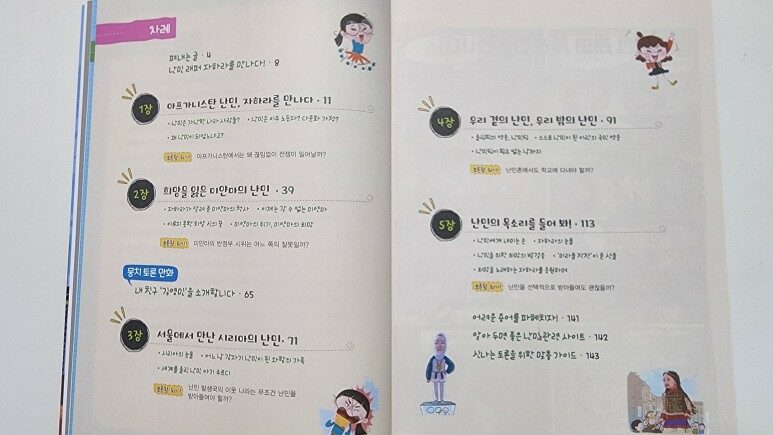 차례
펴내는 글 · 4
난민 래퍼 자하라를 만나다! · 8
1장
아프가니스탄 난민, 자하라를 만나다 · 11
• 난민은 가난한 나라 사람들? • 난민은 이주 노동자? 다문화 가정?
• 왜 난민이 되었느냐고?
토론왕 되기! 아프가니스탄에서는 왜 끊임없이 전쟁이 일어날까?
2장
희망을 잃은 미얀마의 난민 · 39
• 자하라가 알려 준 미얀마의 천사 • 이제는 갈 수 없는 미얀마
• 이루지 못한 치알 신의 꿈 • 미얀마의 위기, 미얀마의 희망
토론왕 되기! 미얀마의 반정부 시위는 어느 쪽의 잘못일까?
뭉치 토론 만화
내 친구 '김영민'을 소개합니다 · 65
3장
서울에서 만난 시리아의 난민 · 71
• 시리아의 눈물 • 어느 날 갑자기 난민이 된 와합의 가족
• 세계를 울린 난민 아기 쿠르디
토론왕 되기! 난민 발생국의 이웃 나라는 무조건 난민을
받아들여야 할까?
4장
우리 곁의 난민, 우리 밖의 난민 · 91
• 올림픽의 영웅, 난민팀 • 스스로 난민이 된 이란의 국민 영웅
• 난민팀이 필요 없는 날까지
토론왕 되기! 난민촌에서도 학교에 다녀야 할까?
5장
난민의 목소리를 들어 봐! · 113
• 난민에게 내미는 손 • 자하라의 눈물
• 난민을 위한 희망의 발걸음 • '미라클 작전'이 준 선물
• 희망을 노래하는 자하라를 응원하며
토론왕 되기! 난민을 선택적으로 받아들여도 괜찮을까?
어려운 용어를 파헤치자! · 141
알아 두면 좋은 난민 관련 사이트 · 142
신나는 토론을 위한 맞춤 가이드 · 143